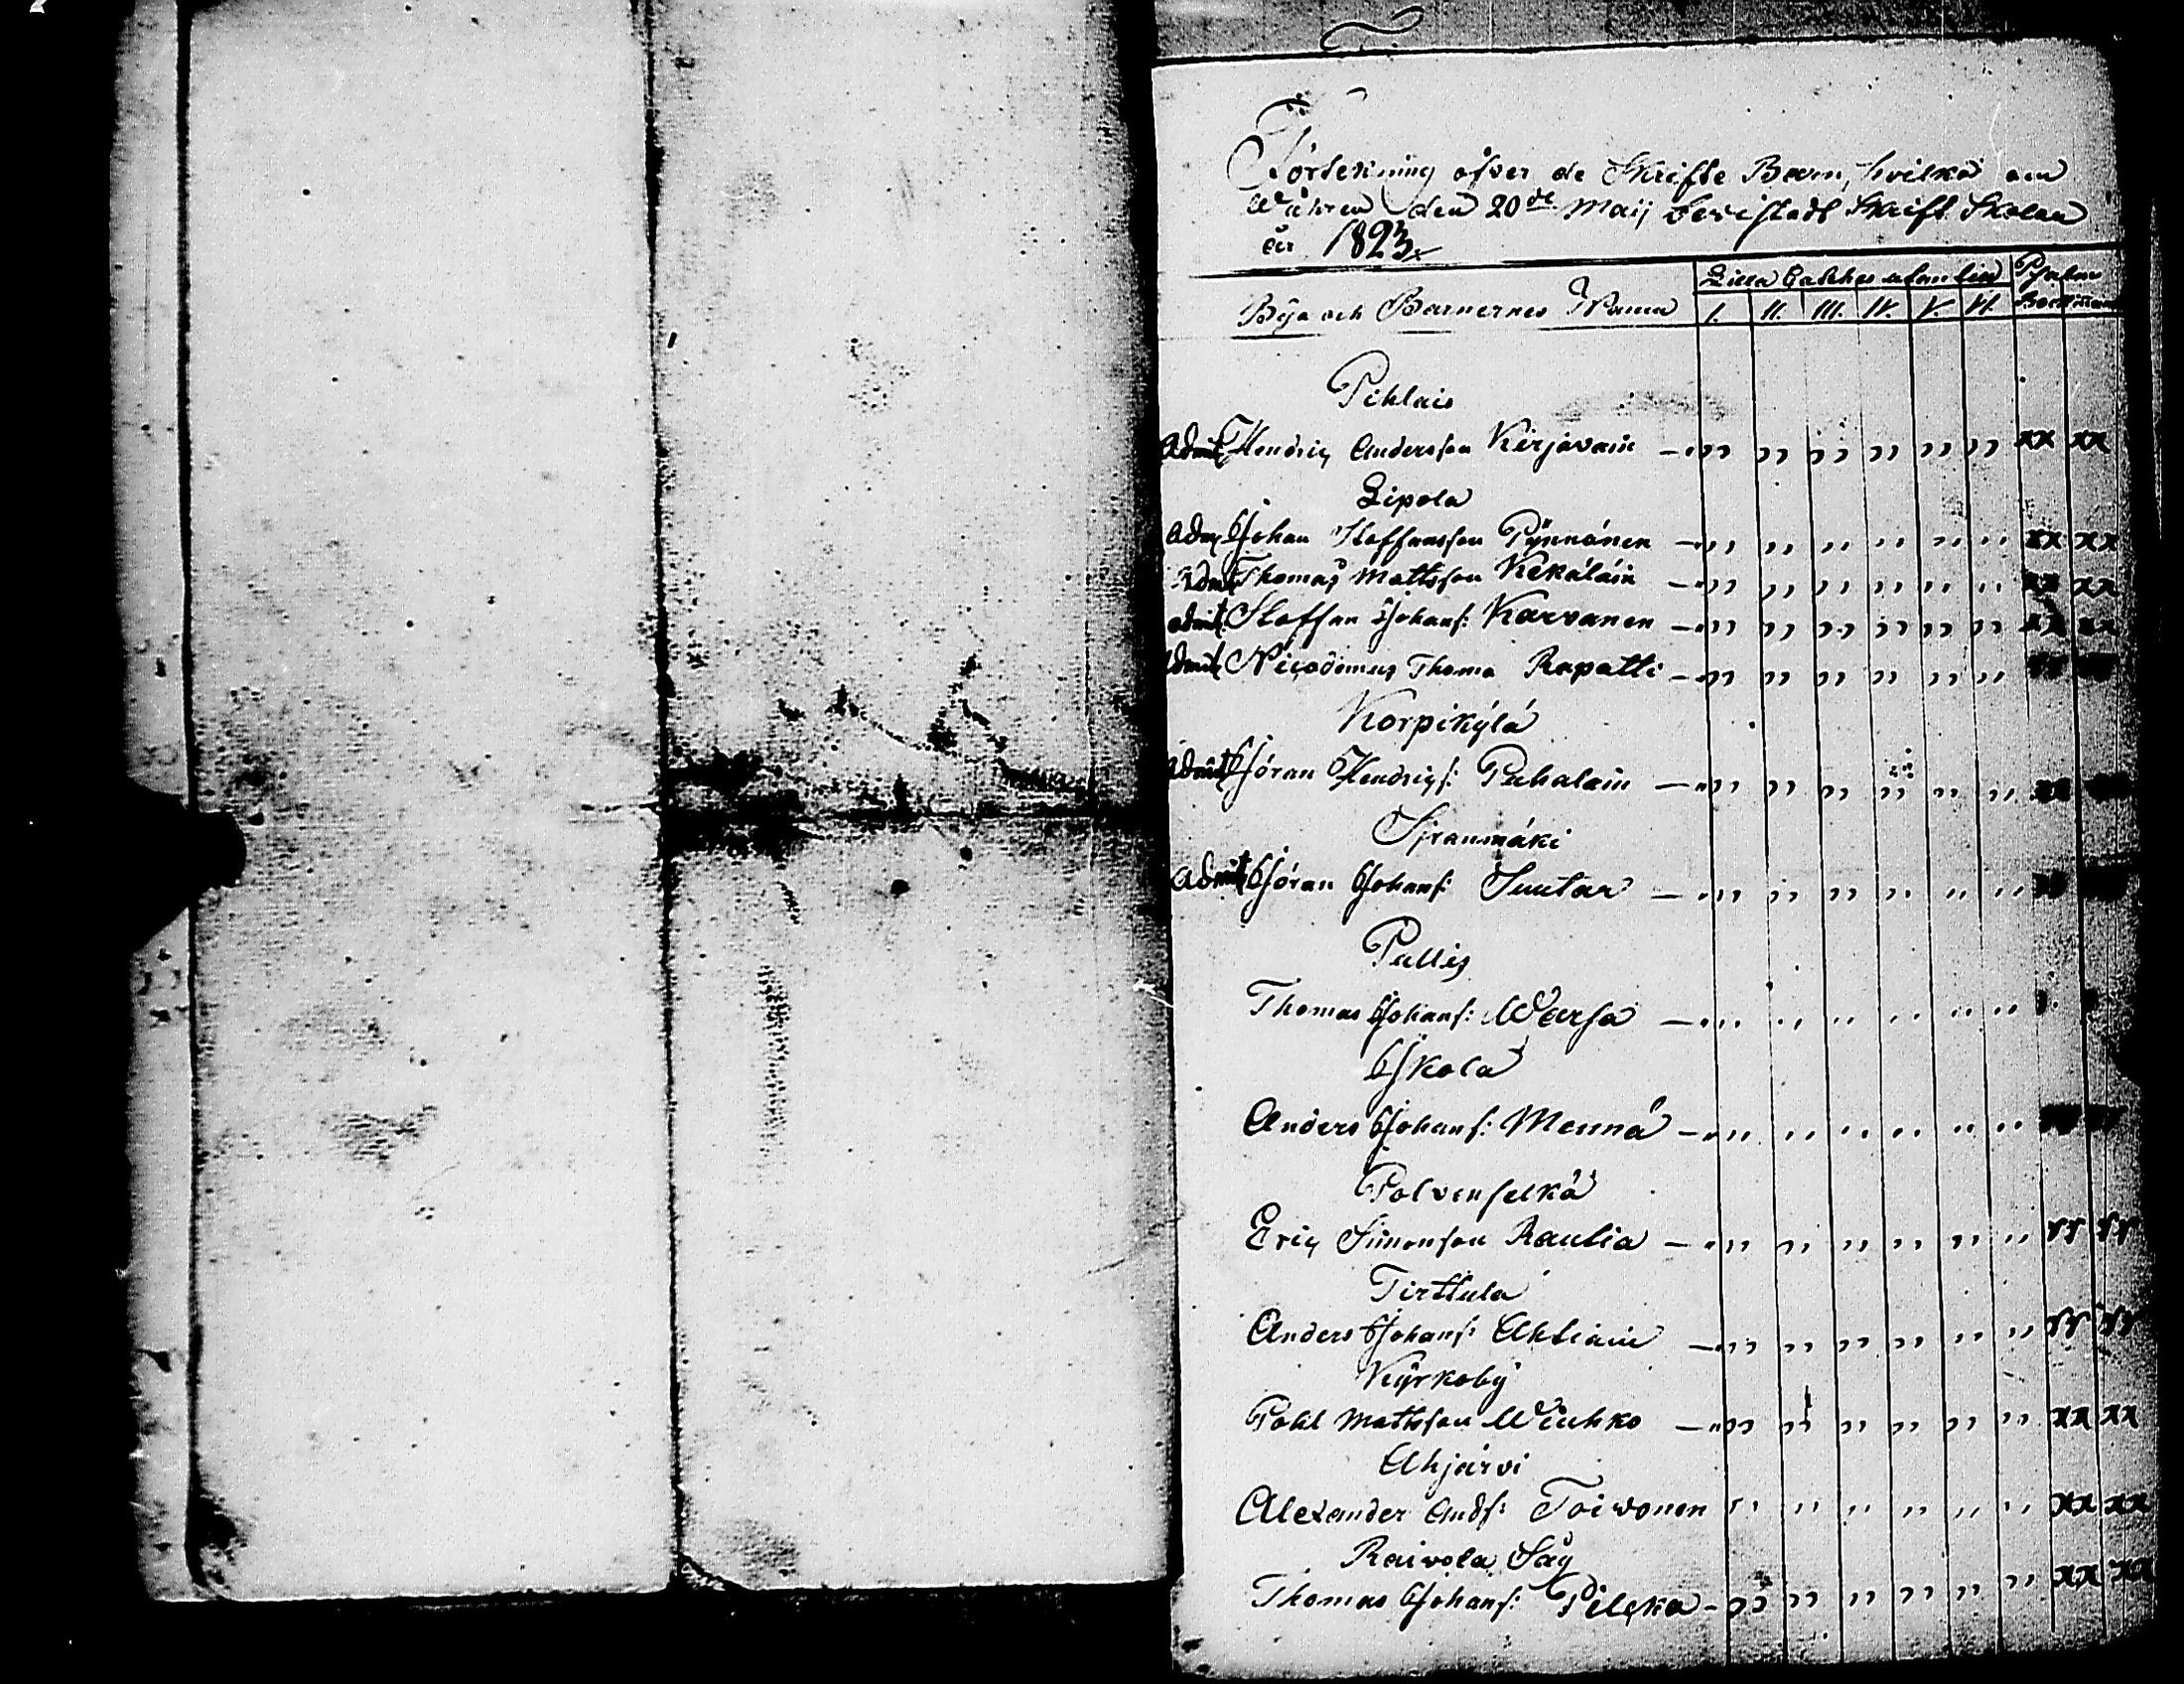 Förtekning öfver de Skrifte Barn, hvilka om
Wåhren den 20de Maij bevistadt Skrift Skolan
år 1823.
Lilla Catches utan lied Psalm
Bya och Barnernes Namn I. II. III. IV. V. VI. Boek
Pihlais
Admit Hendric Andersson Kirjavain — ,, ,, ,, ,, ,, ,, xx xx
Lipola
Adm Johan Staffansson Pÿnnónen — ,, ,, ,, ,, ,, ,, xx xx
Admit Thomas Mattsson Kekäläin — ,, ,, ,, ,, ,, ,, xx xx
Admit Staffan Johans: Karvanen — ,, ,, ,, ,, ,, ,, xx xx
Admit Nicodemus Thoma Rapatti — ,, ,, ,, ,, ,, ,,
Korpikÿlä
Admit Jöran Hendrics: Puhalain — ,, ,, ,, ,, ,, ,, xx
Sjransmäki
Admit Jöran Johans: Suutar — ,, ,, ,, ,, ,, ,,
Pullis
Thomas Johans: Warsa — ,, ,, ,, ,, ,, ,,
Iskola
Anders Johans: Mennä — ,, ,, ,, ,, ,, ,,
Polvenselkä
Eric Simonson Rautia — ,, ,, ,, ,, ,, ,,
Tirttula
Anders Johans: Ahtiain — ,, ,, ,, ,, ,, ,,
Kÿrkobÿ
Pohl Mattsson Wiuhko — ,, ,, ,, ,, ,, ,, xx xx
Ahjärvi
Alexander Ands: Toivonen ,, ,, ,, ,, ,, ,, xx xx
Raivola Såg
Thomas Johans: Pilcka - ,, ,, ,, ,, ,, ,, xx xx